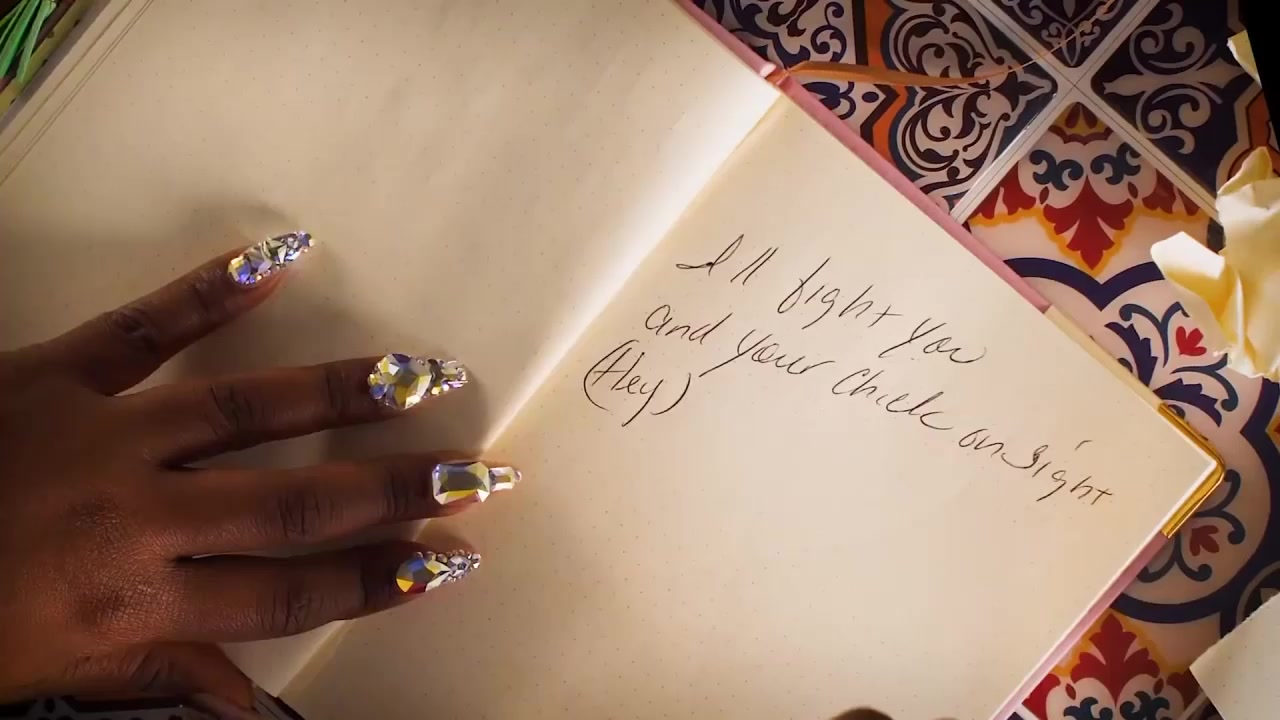 I'll fight you
and your chick on sight
(Hey)